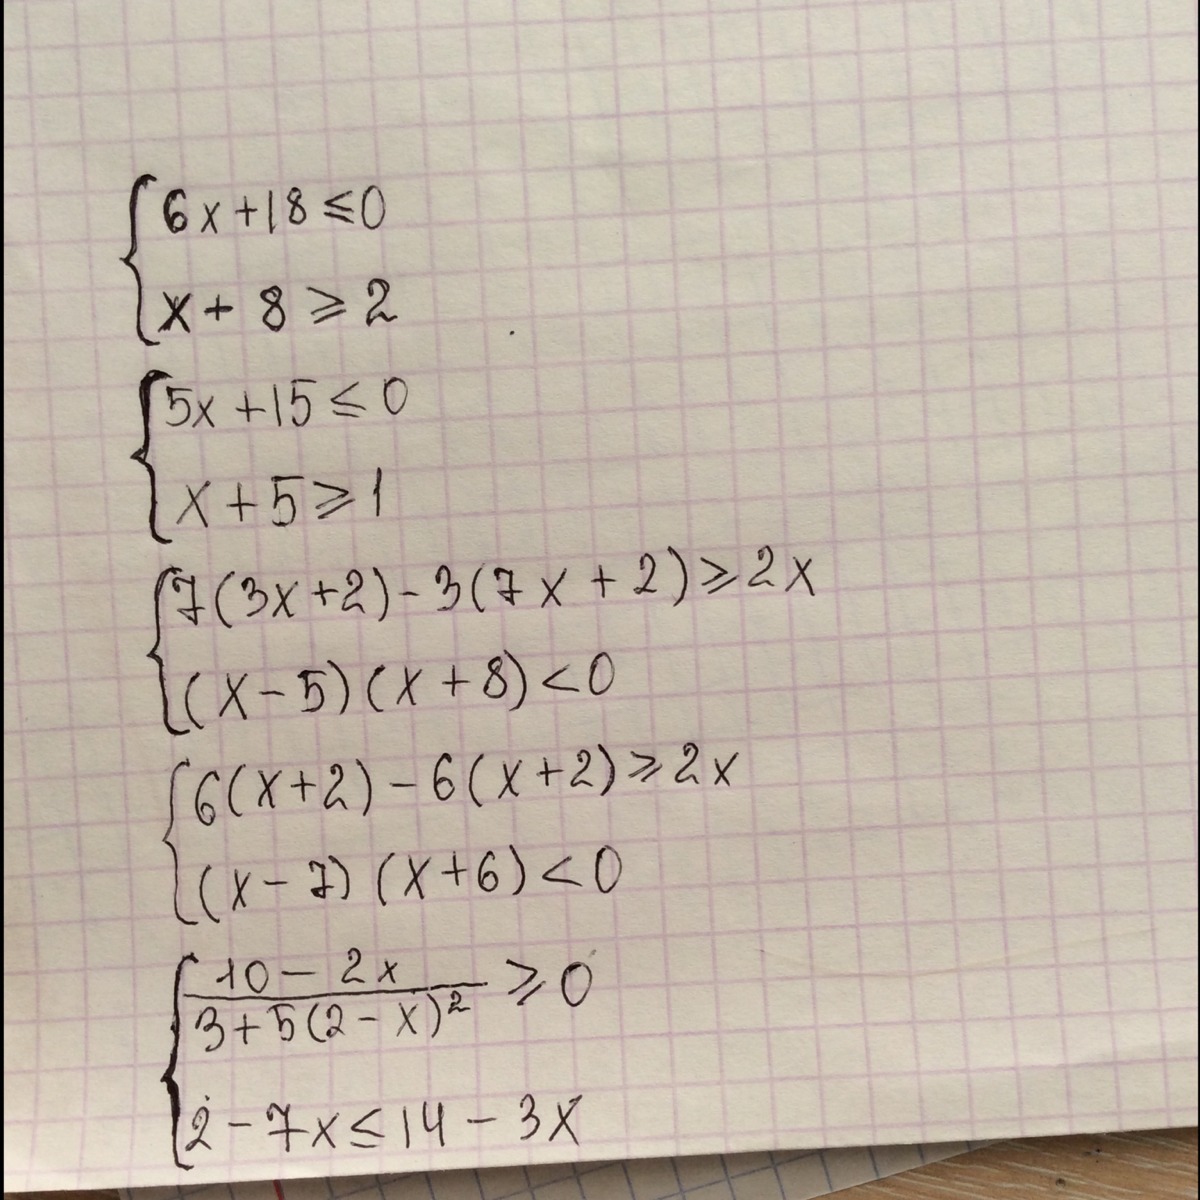 6x+18≤0
x+8≥2
5x+15≤0
x+5≥1
7(3x+2)-3(7x+2)≥2x
(x-5)(x+8)<0
6(x+2)-6(x+2)≥2x
(x-7)(x+6)<0
10-2x
≥0
3+5(2-x)²
2-7x≤14-3x